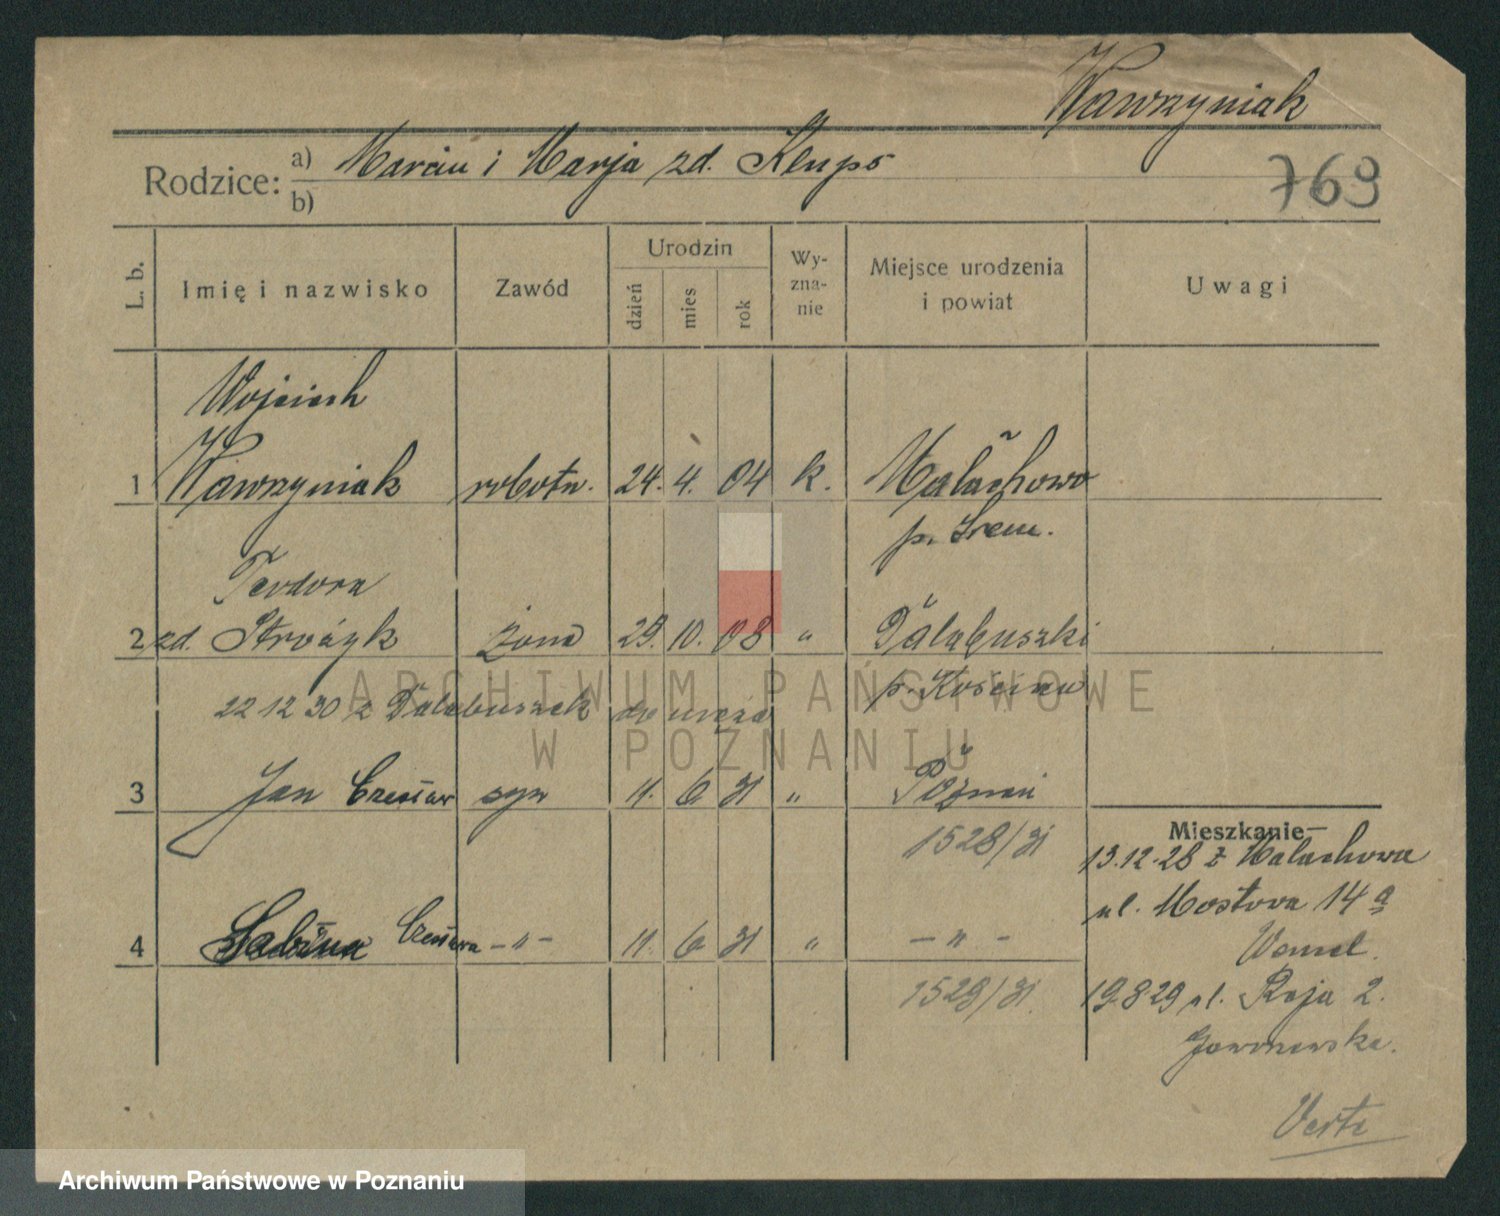 Wawrzyniak
Rodzice: a) Marcin i Marja zd. Klups
b)
769
L. b. Imię i nazwisko Zawód Urodzin dzień mies rok Wyznanie Miejsce urodzenia i powiat Uwagi
Wojciech
1 Wawrzyniak robotn. 24. 4. 04 k. Małachowo
p. Śrem.
Teodora
2 zd. Stróżyk żona 29. 10. 08 " Dalabuszki
p. Kościan
22 12 30 z Dalabuszek do męża
3 Jan Czesław syn 11. 6 31 " Poznań
1528/31
Mieszkanie
13.12.28 z Małachowa
ul. Mostowa 14 a
4 Sabina Czesława -"- 11. 6 31 " -"-
1529/31
19.8.29 ul. Reja 2.
Verte
ARCHIWUM PAŃSTWOWE
W POZNANIU
Archiwum Państwowe w Poznaniu